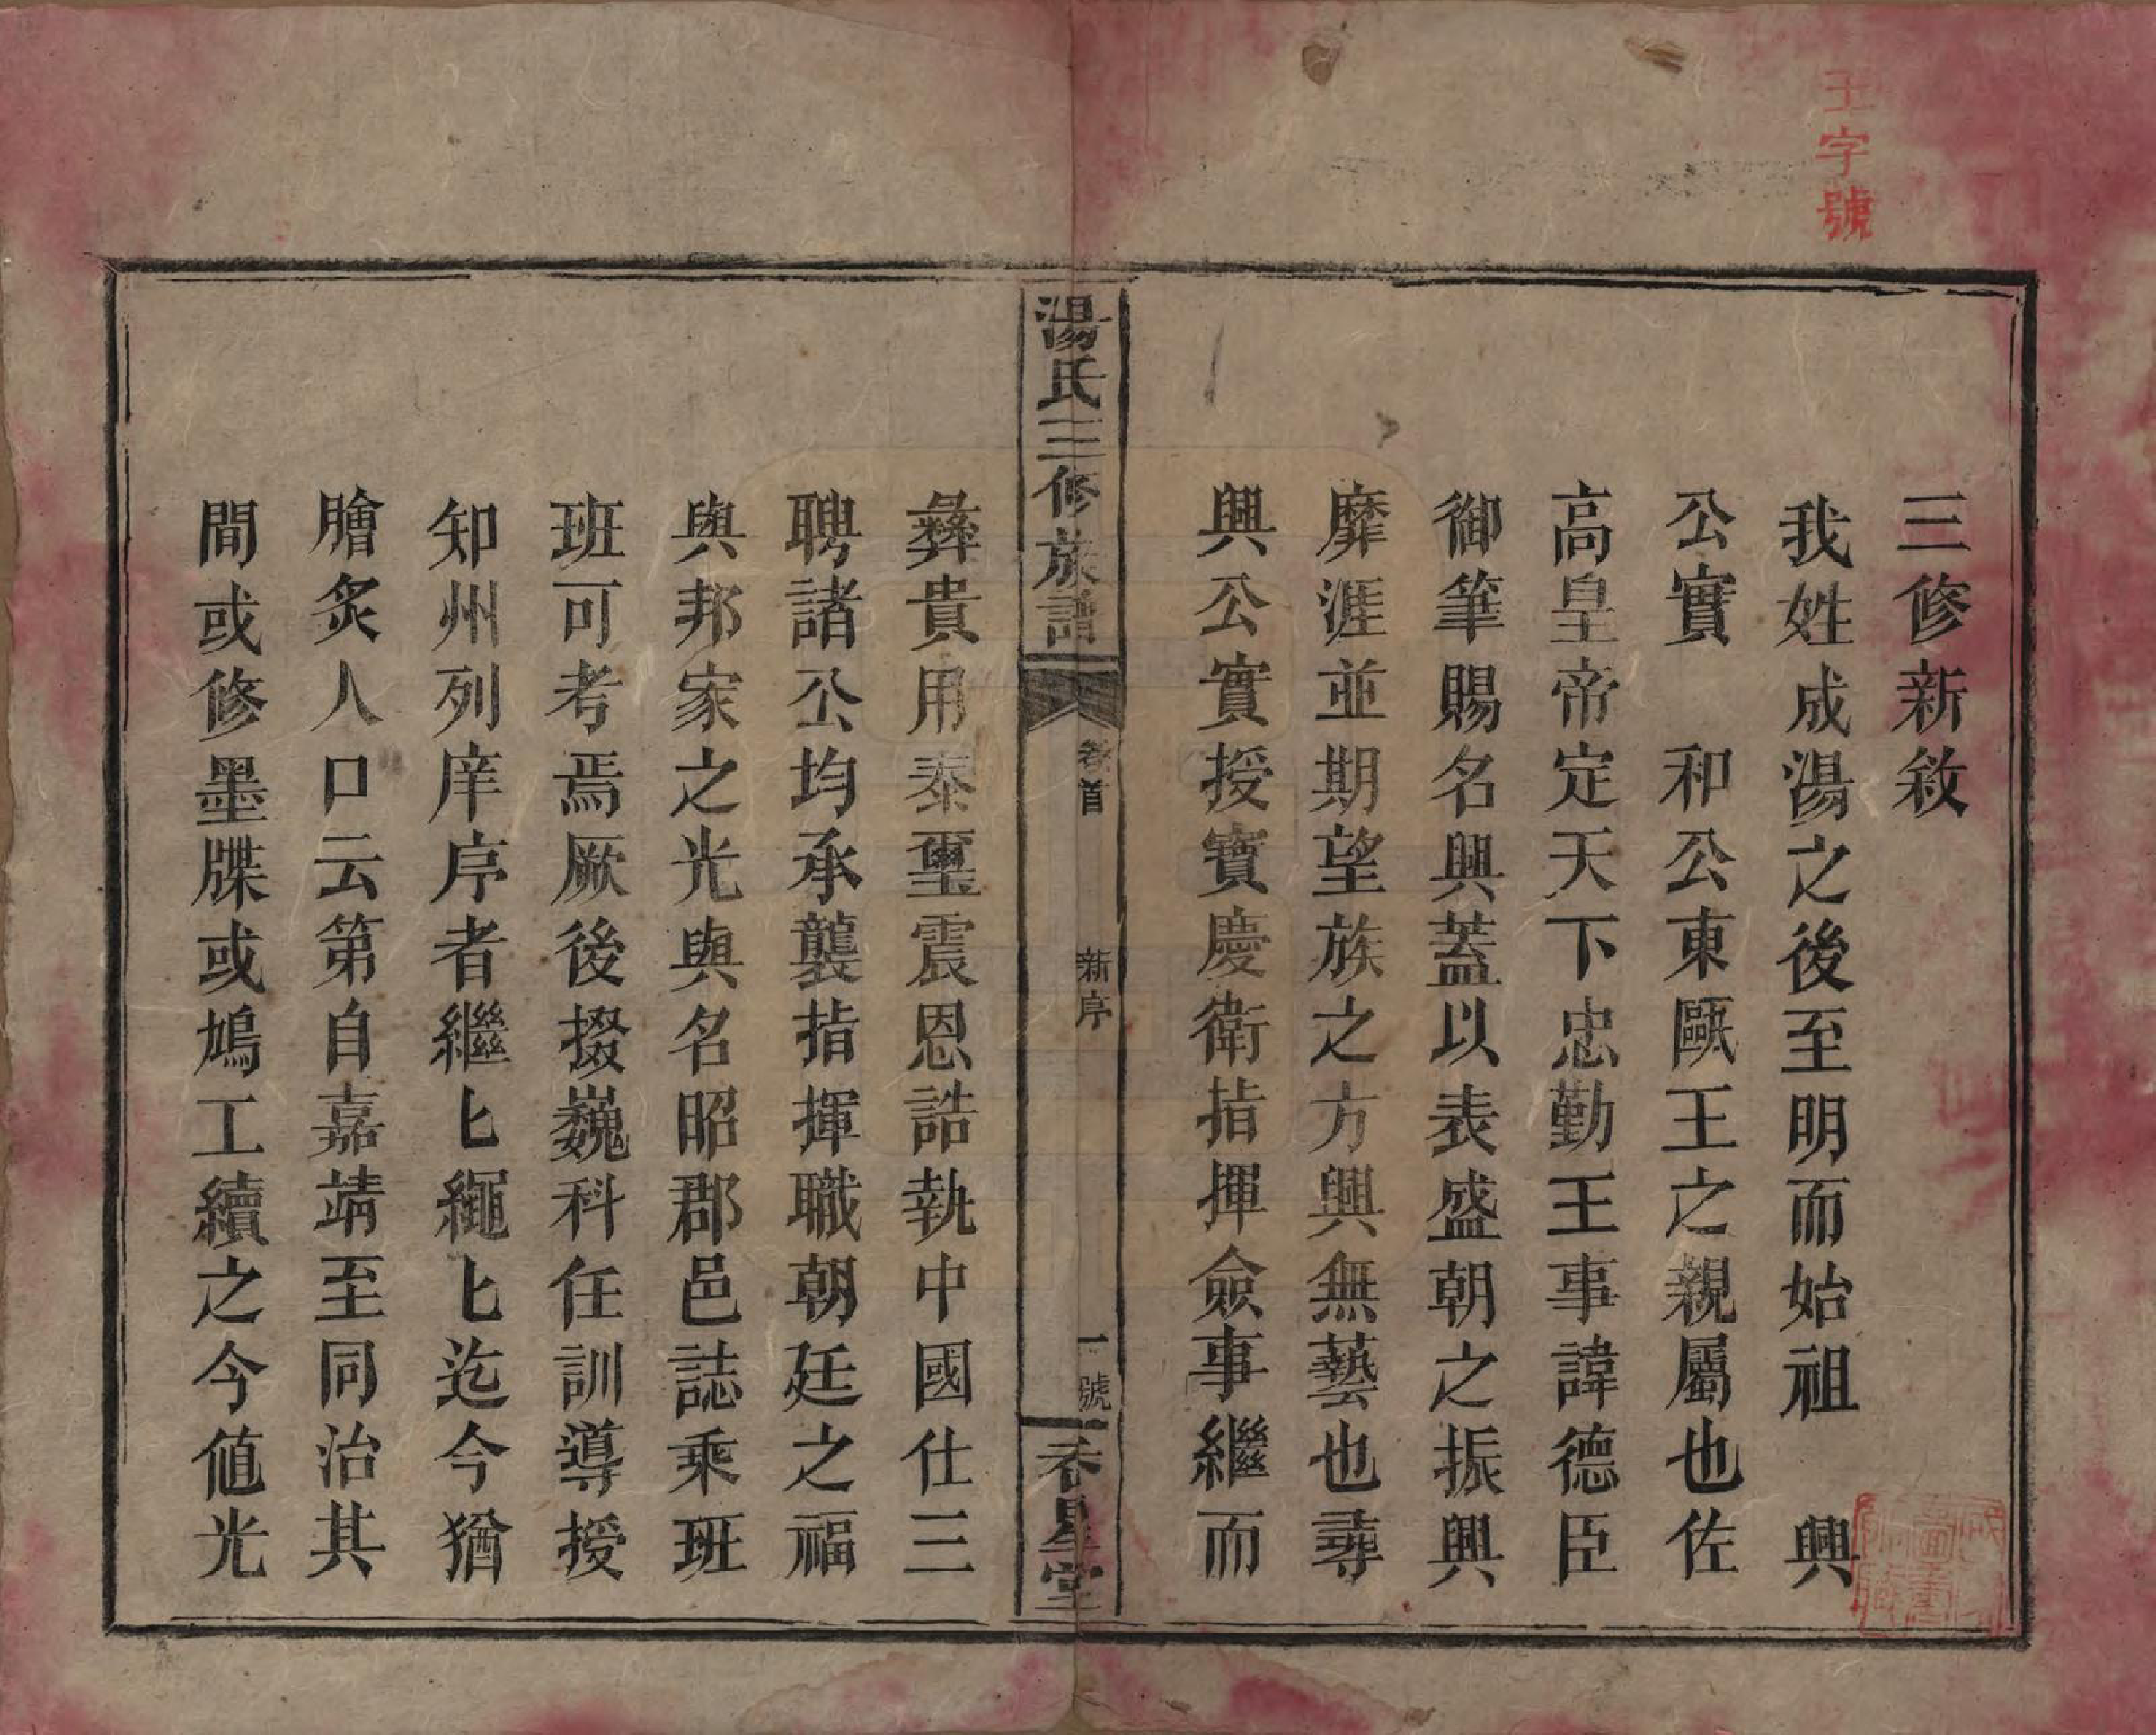 王字號
三修新敘
我姓成湯之後至明而始祖　興
公實　和公東甌王之親屬也佐
高皇帝定天下忠勤王事諱德臣
御筆賜名興蓋以表盛朝之振興
靡涯並期望族之方興無藝也尋
興公實授寶慶衛指揮僉事繼而
湯氏三修族譜
卷首
新序
一號
春星堂
彝貴用泰璽震恩誥執中國仕三
聘諸公均承襲指揮職朝廷之福
與邦家之光與名昭郡邑誌乘班
班可考焉厥後掇巍科任訓導授
知州列庠序者繼匕繩匕迄今猶
膾炙人口云第自嘉靖至同治其
間或修墨牒或鳩工續之今値光